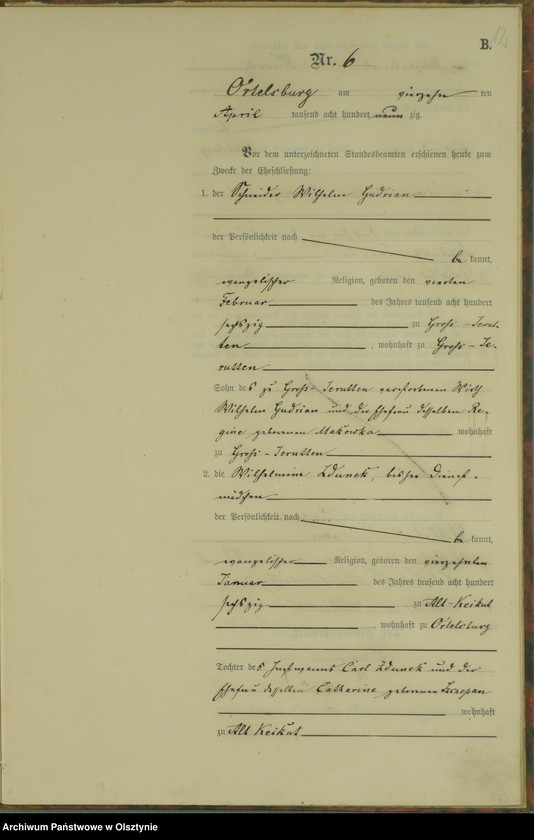 B.
12
Nr. 6
Ortelsburg am vierzehn ten
April tausend acht hundert neun zig.
Vor dem unterzeichneten Standesbeamten erschienen heute zum
Zwecke der Eheschließung:
1. der Schneider Wilhelm Gudrian
der Persönlichkeit nach
be kannt,
evangelischer Religion, geboren den vierten
Februar des Jahres tausend acht hundert
sechszig zu Groß-Jerut-
ten, wohnhaft zu Groß-Je-
rutten
Sohn des zu Groß-Jerutten verstorbenen Wirth
Wilhelm Gudrian und der Ehefrau desselben Re-
gine geborenen Makowka wohnhaft
zu Groß-Jerutten
2. die Wilhelmine Zdunek, bisher Dienst-
mädchen
der Persönlichkeit nach
be kannt,
evangelischer Religion, geboren den vierzehnten
Januar des Jahres tausend acht hundert
sechszig zu Alt-Keikut
, wohnhaft zu Ortelsburg
Tochter des Instmanns Carl Zdunek und der
Ehefrau desselben Catharine geborenen
wohnhaft
zu Alt Keikut
Archiwum Państwowe w Olsztynie